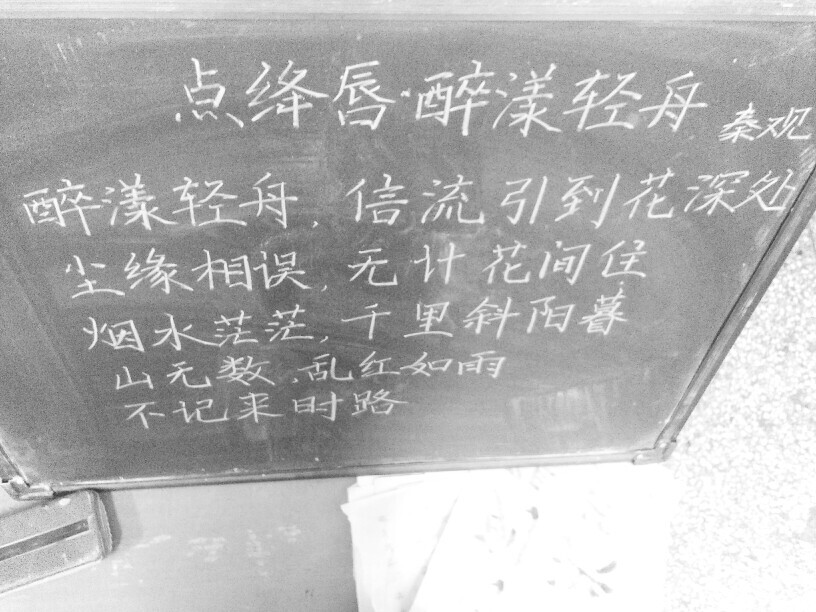 点绛唇·醉漾轻舟
秦观
醉漾轻舟,信流引到花深处
尘缘相误,无计花间住
烟水茫茫,千里斜阳暮
山无数,乱红如雨
不记来时路